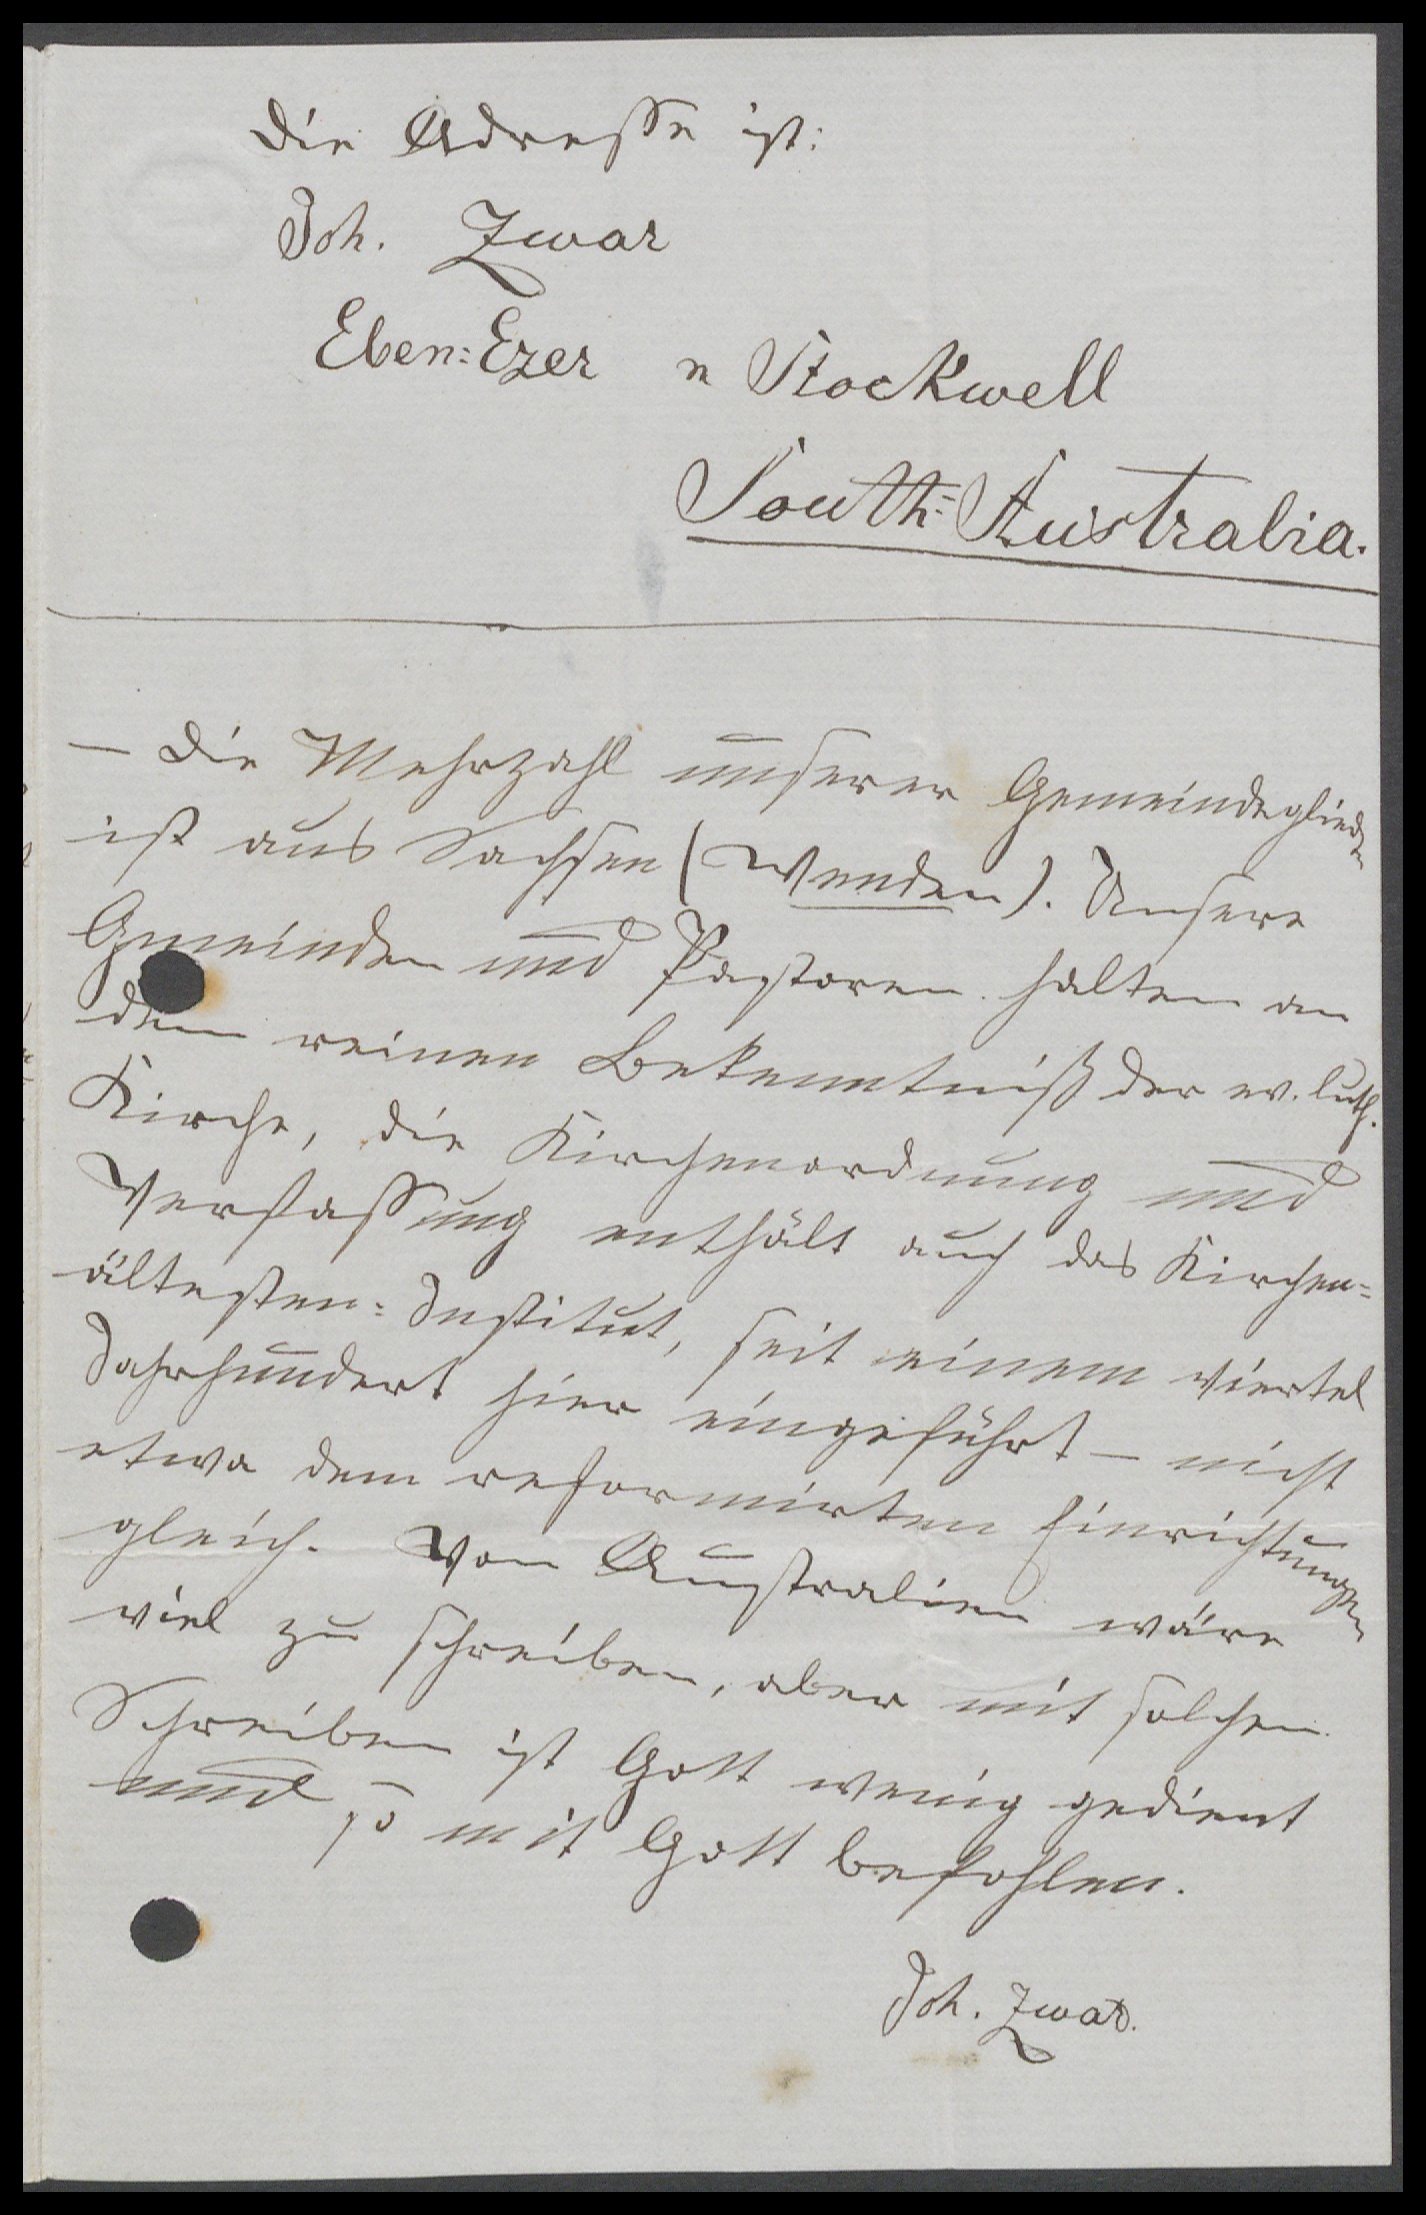 Die Adresse ist:
Joh. Zwar
Eben=Ezer n Stockwell
South=Australia.
— Die Mehrzahl unserer Gemeindeglieder
ist aus Sachsen (Wenden). Unsere
Gemeinden und Pastoren halten an
dem reinen Bekenntniß der ev. luth.
Kirche, die Kirchenordnung und
Verfassung enthält auch das Kirchen=
ältesten=Institut, seit einem viertel
Jahrhundert hier eingeführt — nicht
etwa dem reformirten Einrichtungen
gleich. Von Australien wäre
viel zu schreiben, aber mit solchen
Schreiben ist Gott wenig gedient
und so mit Gott befohlen.
Joh. Zwar.